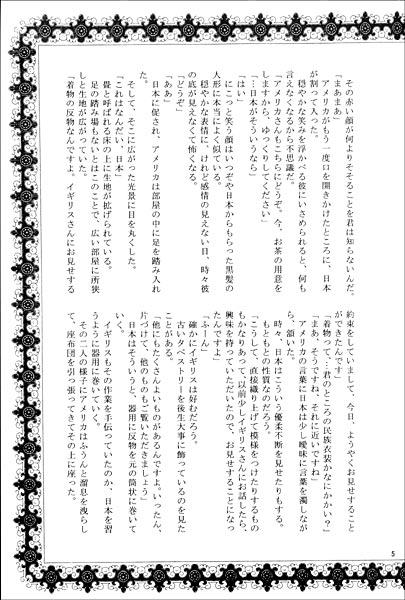 その赤い顔が何よりそそることを君は知らないんだ。
「まあまあ」
アメリカがもう一度口を開きかけたところに、日本
が割って入った。
穏やかな笑みを浮かべる彼にいさめられると、何も
言えなくなるから不思議だ。
「アメリカさんもこちらにどうぞ。今、お茶の用意を
しますから、ゆっくりしてください」
「…日本がそういうなら」
「はい」
にこっと笑う顔はいつぞや日本からもらった黒髪の
人形に本当によく似ている。
穏やかな表情に、けれど感情の見えない目、時々彼
の底が見えなくて怖くなる。
「どうぞ」
「ああ」
日本に促され、アメリカは部屋の中に足を踏み入れ
た。
そして、そこに広がった光景に目を丸くした。
「これはなんだい、日本」
畳と呼ばれる床の上に生地が拡げられている。
足の踏み場もないとはこのことで、広い部屋に所狭
しと生地が広がっていた。
「着物の反物なんですよ。イギリスさんにお見せする
約束をしていまして、今日、ようやくお見せすること
ができたんです」
「着物って、君のところの民族衣装かなにかかい？」
「まあ、そうですね、それに近いですね」
アメリカの言葉に日本は少し曖昧に言葉を濁しなが
ら、頷いた。
時々、日本はこういう優柔不断を見せたりもする。
もともとの性質なのだろう。
「こうして、直接織り上げて模様をつけたりするもの
もかなりあって、以前少しイギリスさんにお話したら、
興味を持っていただいたので、お見せすることになっ
たんですよ」
「ふーん」
確かにイギリスは好むだろう。
古いタペストリーを後生大事に飾っているのを見た
ことがある。
「他にもたくさんよいものがあるんですよ。いったん、
片づけて、他のものもご覧いただきましょう」
日本はそういうと、器用に反物を元の筒状に巻いて
いく。
イギリスもその作業を手伝っていたのか、日本を習
うように器用に巻いていく。
その二人の様子にアメリカはふうんと溜息を洩らし
て、座布団を引っ張ってきてその上に座った。
5